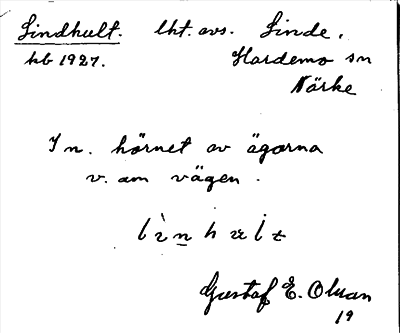 Lindhult. lht. avs. Linde.
hb 1927. Hardemo sn
Närke
I n. hörnet av ägorna
v. om vägen.
Gustaf E. Olsson
19